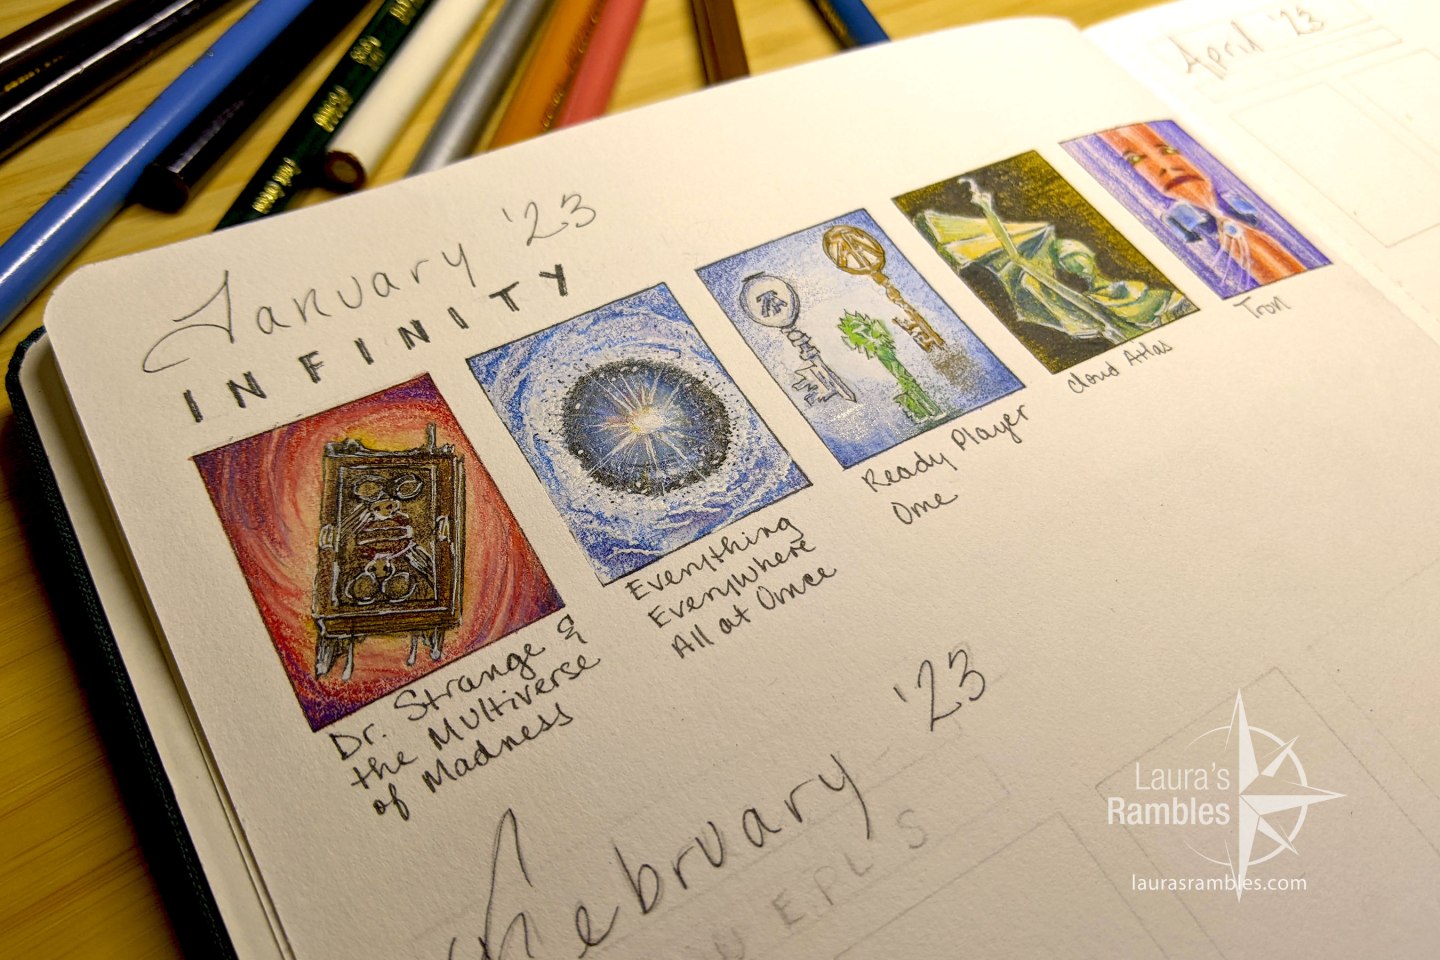 January '23
INFINITY
Dr. Strange &
the Multiverse
of Madness
Everything
Everywhere
All at Once
Ready Player
One
Cloud Atlas
Tron
February '23
April '23
Laura's
Rambles
laurasrambles.com